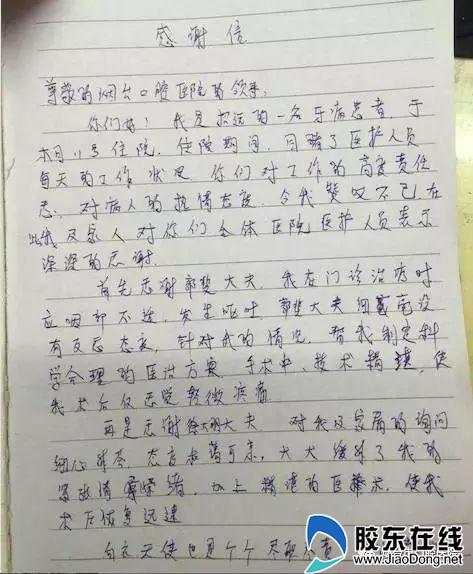 感谢信
尊敬的烟台口腔医院的领导:
你们好!我是招远的一名牙病患者 于
本月11号住院,住院期间,目睹了医护人员
每天的工作状况 你们对工作的高度责任
感,对病人的热情态度,令我赞叹不已在
此我及家人对你们全体医院医护人员表示
深深的感谢.
首先感谢郭斐大夫,我在门诊治疗时
应咽部不适,发生呕吐,郭斐大夫细毫没
有反感态度,针对我的情况,帮我制定科
学合理的医治方案,手术中,技术精 使
我术后仅感觉轻微疼痛
再是感谢徐 大夫 对我及家属的询问
细心解答,态度和蔼可亲,大大缓解了我的
紧张情 绪,加上精湛的医 术,使我
术后恢复迅速
白衣天使也是个个尽职尽责
胶东在线
www.JiaoDong.net